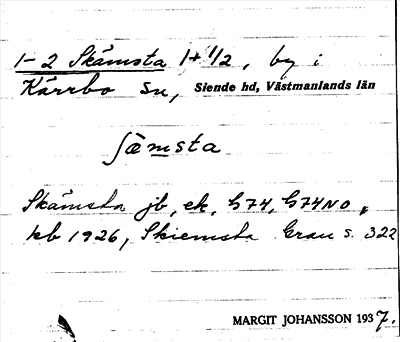 1-2 Skämsta 1+1/2, by i
Kärrbo sn, Siende hd, Västmanlands län
ʃæ̀msta
Skämsta jb, ek, G74, G74NO,
kb 1926, Skiemsta Grau s. 322
MARGIT JOHANSSON 1937.